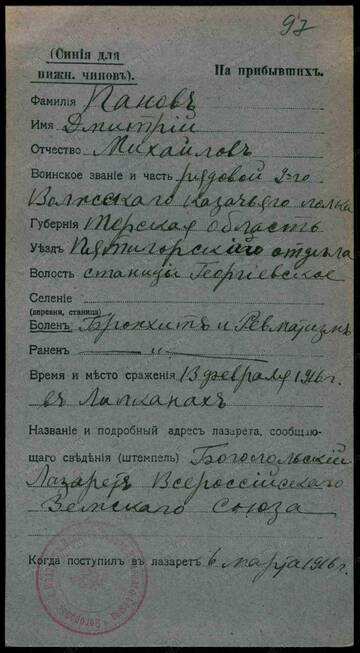 97
(Синія для
нижн. чиновъ).
На прибывшихъ.
Фамилія Пановъ
Имя Дмитрій
Отчество Михайловъ
Воинское званіе и часть рядовой 2-го
Волжскаго Казачьяго полка
Губернія Терская область
Уѣздъ Пятигорскаго отдѣла
Волость станицы Георгіевское
Селеніе
(деревня, станица)
Боленъ: Бронхитъ и Ревматизмъ
Раненъ — „ —
Время и мѣсто сраженія 13 февраля 1916 г.
въ
Названіе и подробный адресъ лазарета, сообщаю-
щаго свѣдѣнія (штемпель) Богопольскій
Лазаретъ Всероссійскаго
Земскаго союза
Когда поступилъ въ лазаретъ 6 марта 1916 г.